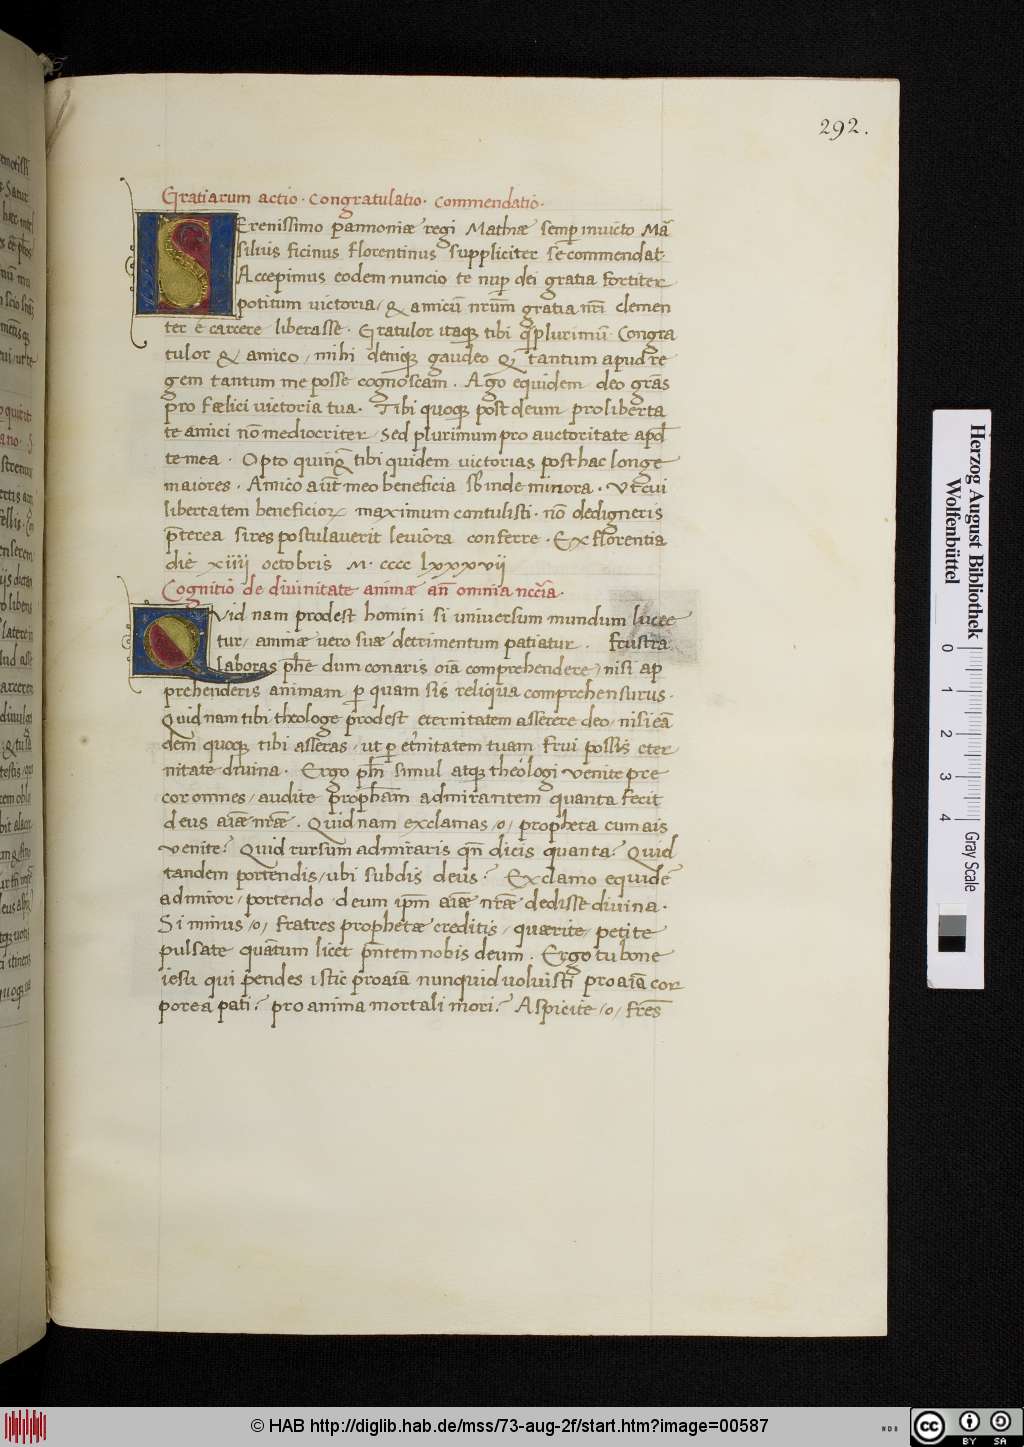 292.
Gratiarum actio· congratulatio· commendatio·
SErenissimo pannoniæ regi Mathiæ semp̲ inuicto Mā
silius ficinus florentinus suppliciter se commendat·
Accepimus eodem nuncio te nup̲ dei gratia fortiter
potitum uictoria, & amicū nr̄um gratia nr̄i clemen
ter e carcere liberasse· Gratulor itaqꝫ tibi q̄plurimū· Congra
tulor & amico, mihi deniqꝫ gaudeo tantum apud re
gem tantum me posse cognoscam· Ago equidem deo grās
pro fælici uictoria tua· Tibi quoqꝫ post deum pro liberta
te amici nō mediocriter· sed plurimum pro auctoritate apd̄
te mea· Opto tibi quidem uictorias posthac longe
maiores· Amico aūt meo beneficia sb̄inde minora· Vt cui
libertatem beneficioꝝ maximum contulisti· nō dedigneris
p̄terea si res postulauerit leuiora conferre· Ex florentia
die xiiij octobris M· cccc lxxxvij
Cognitio de diuinitate animæ an̄ omnia ncc̄ia·
QVid nam prodest homini si uniuersum mundum lucre
tur, animæ uero suæ detrimentum patiatur· frustra
laboras ph̄e dum conaris oīa comprehendere, nisi ap
prehenderis animam p̲ quam sis reliqua comprehensurus·
Quid nam tibi theologe prodest eternitatem asserere deo, nisi eā
dem quoqꝫ tibi asseras, ut p̲ et̄nitatem tuam frui possis eter
nitate diuina· Ergo ph̄i simul atqꝫ theologi uenite pre
cor omnes, audite proph̄am admirantem quanta fecit
deus aīæ nr̄æ· Quid nam exclamas, o, propheta cum ais
uenite? Quid rursum admiraris qn̄ dicis quanta? Quid
tandem portendis, ubi subdis deus? Exclamo equidē
admiror, portendo deum ip̄m aīæ nr̄æ dedisse diuina·
Si minus, o, fratres prophetæ creditis, quærite, petite
pulsate quātum licet p̄ntem nobis deum· Ergo tu bone
iesu qui pendes istic pro aīa nunquid uoluisti pro aīa cor
porea pati? pro anima mortali mori? Aspicite, o, frēs
Herzog August Bibliothek
Wolfenbüttel
0 1 2 3 4
Gray Scale
© HAB http://diglib.hab.de/mss/73-aug-2f/start.htm?image=00587
WDB
cc BY SA